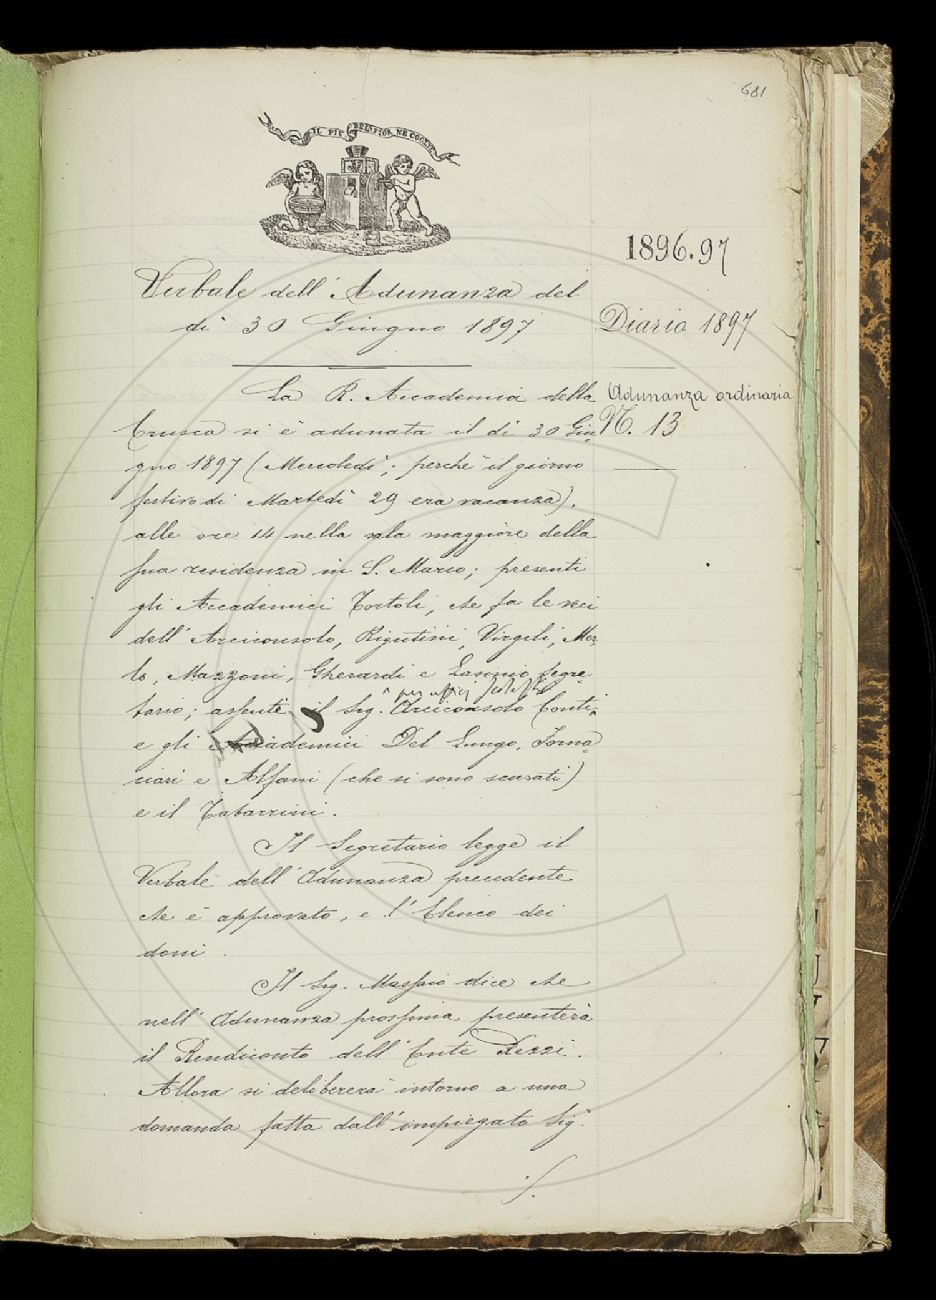 681
IL PIÙ BEL FIOR NE COGLIE
1896.97
Verbale dell'Adunanza del
dì 30 Giugno 1897
Diario 1897
Adunanza ordinaria
N. 13
La R. Accademia della
Crusca si è adunata il dì 30 Giu-
gno 1897 (Mercoledì; perchè il giorno
festivo di Martedì 29 era vacanza),
alle ore 14 nella sala maggiore della
sua residenza in S. Marco; presenti
gli Accademici Tortoli, che fa le veci
dell'Arciconsolo, Rigutini, Virgili, Mer-
lo, Mazzoni, Gherardi e Lasinio segre
tario; assenti il Sig. Arciconsolo Conti,
per uffici scolastici
e gli Accademici Del Lungo, Forna-
ciari e Alfani (che si sono scusati)
e il Tabarrini.
Il Segretario legge il
Verbale dell'Adunanza precedente
che è approvato, e l'Elenco dei
doni.
Il Sig. Massaio dice che
nell'Adunanza prossima presenterà
il Rendiconto dell'Ente Rezzi.
Allora si delibererà intorno a una
domanda fatta dall'impiegato Sig.